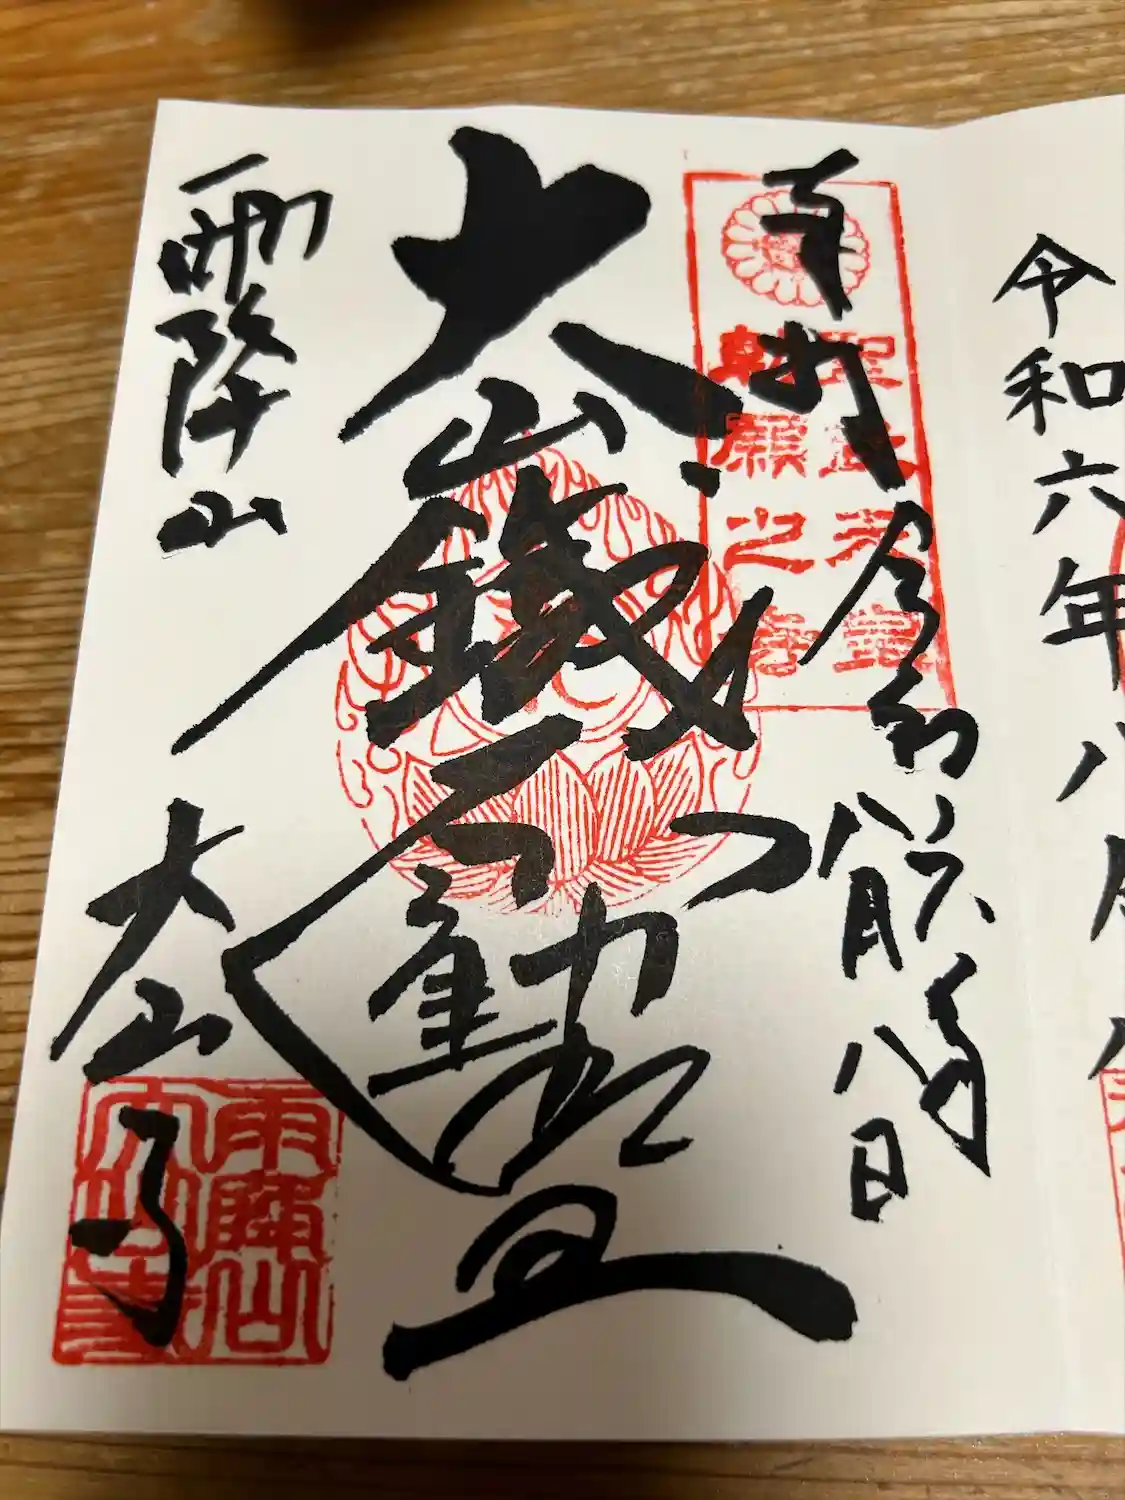 令和六年八月
奉拝 令和六年
八月八日
聖武天皇
勅願之
大山鐵不動
雨降山
大山寺
雨降山
大山寺